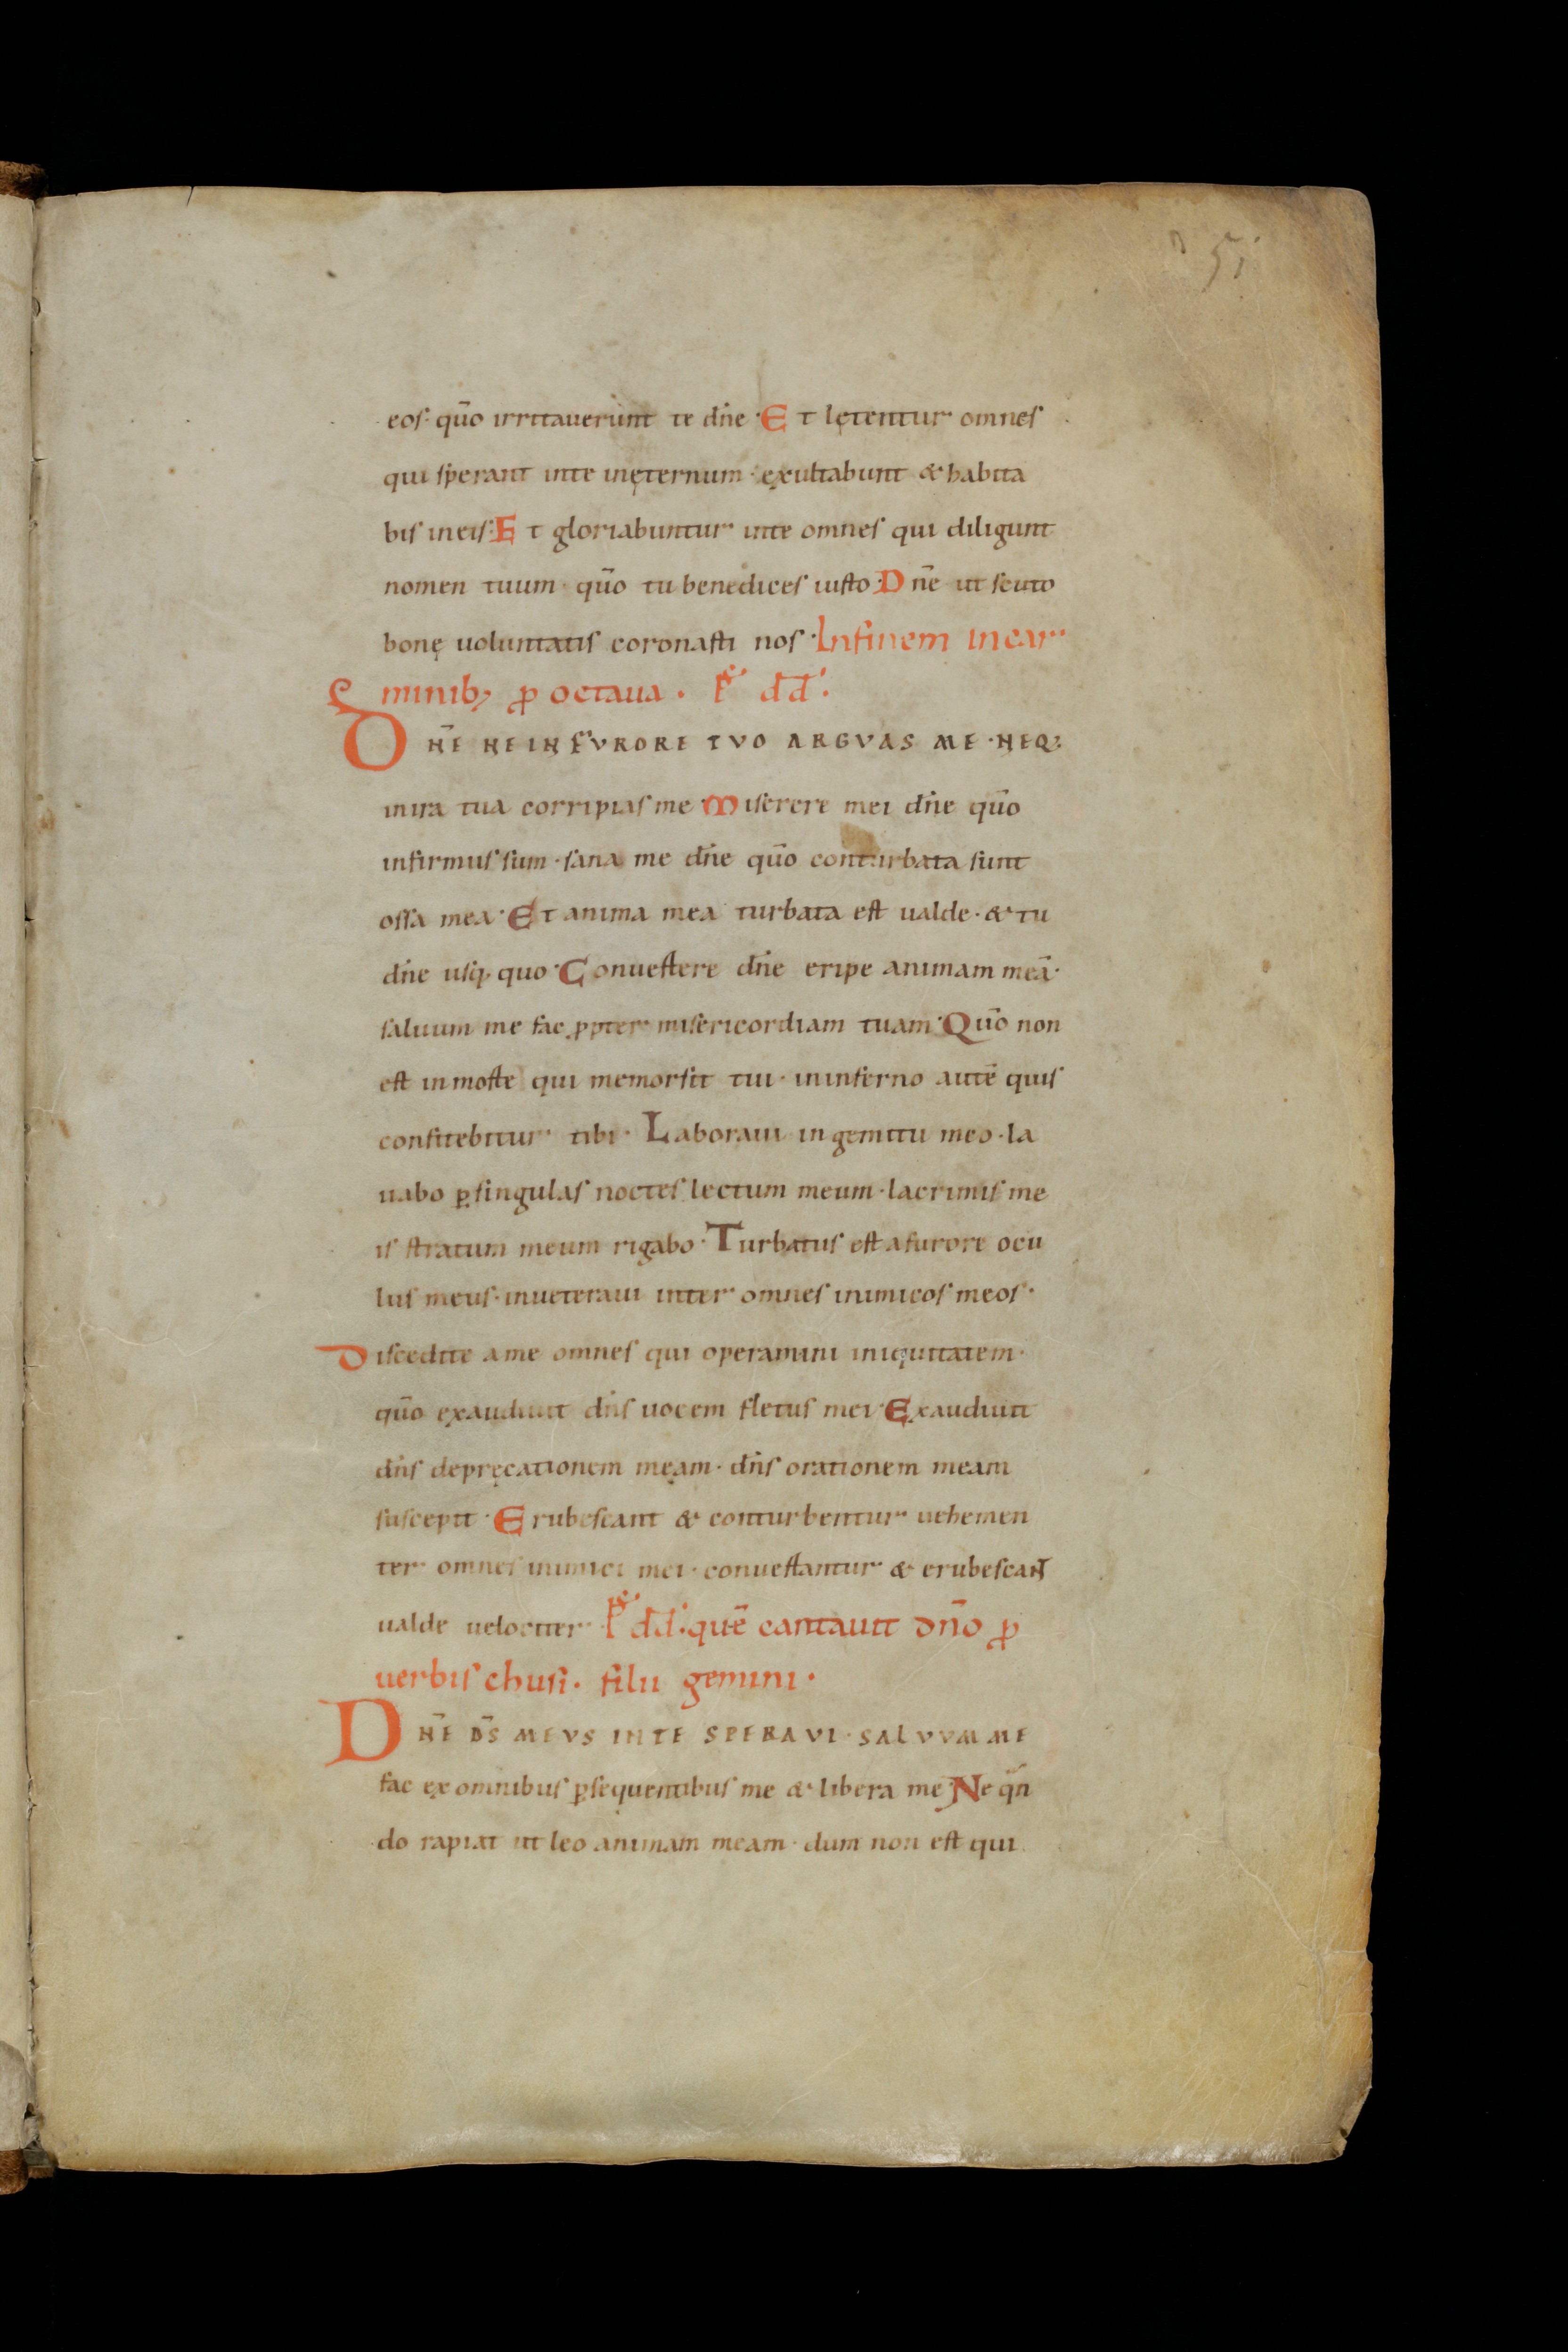 51
eos· qūo irritauerunt te dn̄e· Et lętentur omnes
qui sperant inte inęternum· exultabunt & habita
bis ineis· Et gloriabuntur inte omnes qui diligunt
nomen tuum· qūo tu benedices iusto· Dn̄e ut scuto
bonę uoluntatis coronasti nos· Infinem incar
minib; ꝓ octaua· dd̄·
DN̄E NE IN FURORE TVO ARGVAS ME· NEQ;
inira tua corripias me· Miserere mei dn̄e qūo
infirmus sum· sana me dn̄e qūo conturbata sunt
ossa mea· Et anima mea turbata est ualde· & tu
dn̄e usq; quo· Conuertere dn̄e eripe animam meā·
saluum me fac ꝓpter misericordiam tuam· Qūo non
est inmorte qui memorsit tui· ininferno autē quis
confitebitur tibi· Laboraui ingemitu meo· la
uabo ꝑsingulas noctes lectum meum· lacrimis me
is stratum meum rigabo· Turbatus est afurore ocu
lus meus· inueteraui inter omnes inimicos meos·
Discedite ame omnes qui operamini iniquitatem·
qūo exaudiuit dn̄s uocem fletus mei· Exaudiuit
dn̄s depręcationem męam· dn̄s orationem meam
suscepit· Erubescant & conturbentur uehemen
ter omnes inimici mei· conuertantur & erubescant
ualde uelociter· dd̄· quē cantauit dn̄o ꝓ
uerbis chusi· filii gemini·
DN̄E DS̄ MEVS INTE SPERAVI· SALVVM ME
fac ex omnibus ꝑsequentibus me & libera me· Ne qn̄
do rapiat ut leo animam meam· dum non est qui